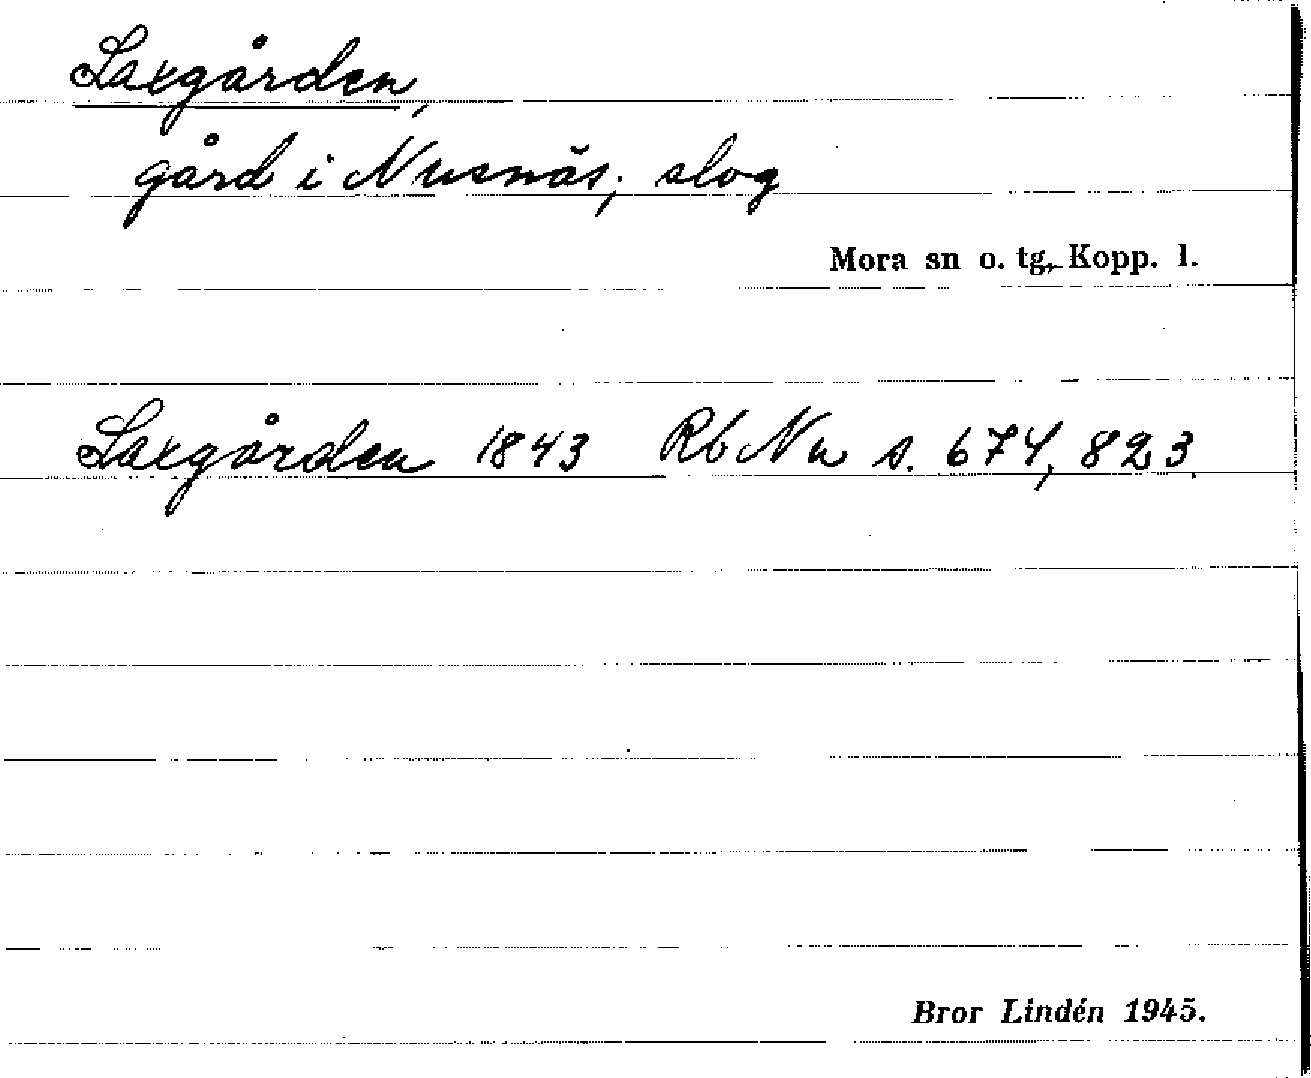 Laxgården,
gård i Nusnäs; slog
Mora sn o. tg, Kopp. l.
Laxgården 1843 Rb Nu s. 674, 823.
Bror Lindén 1945.